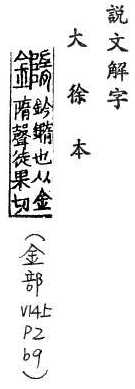 說文解字
大徐本
鈐䥯也从金
隋聲徒果切
(金部 V14上 P2 b9)